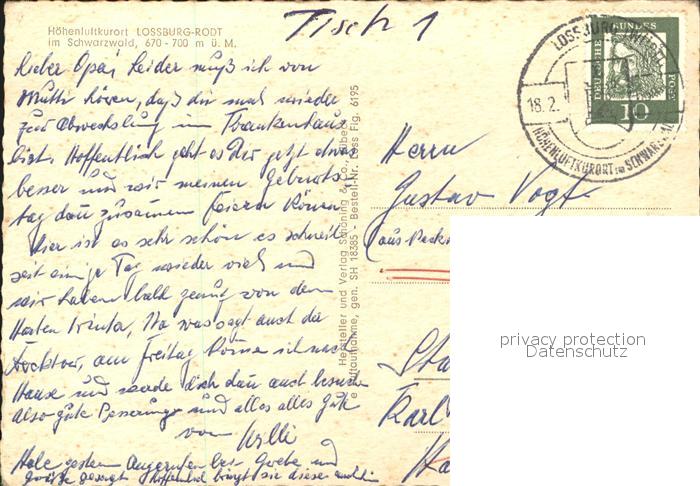 Tisch 1
Höhenluftkurort LOSSBURG-RODT
im Schwarzwald, 670-700 m ü. M.
Lieber Opa, leider muß ich von
Mutti hören, daß du mal wieder
zur Abwechslung im Krankenhaus
bist. Hoffentlich geht es Dir jetzt etwas
besser und wir meinen Geburts-
tag dan zusammen feiern können
Hier ist es sehr schön es schneit
seit einige Tag wieder viel und
wir haben bald genug von dem
Winter, Na was sagt auch der
Docktor, am Freitag könne ich nach
Hause und werde dich dan auch besuchen
also gute Besserung und alles alles Gute
von Willi
Habe gestern Angerufen bei und
Grüße gesagt hoffentlich bringt sie dieser
Hersteller und Verlag Schöning & Co., Lübeck
gen. SH 18385 - Bestell-Nr. Loss Fig. 6195
LOSSBURG
18.2.
HÖHENLUFTKURORT IM SCHWARZWALD
DEUTSCHE BUNDESPOST
10
Herrn
Gustav Vogt
Karl
privacy protection
Datenschutz